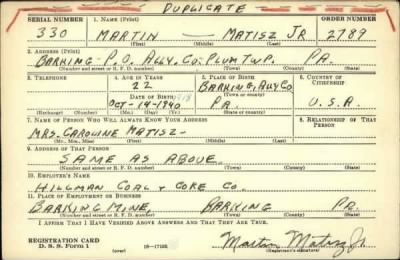 DUPLICATE
SERIAL NUMBER 1. NAME (Print) ORDER NUMBER
330 MARTIN — MATISZ JR 2789
(First) (Middle) (Last)
2. ADDRESS (Print)
BARKING P.O. ALLY. CO. PLUM TWP. PA.
(Number and street or R. F. D. number) (Town) (County) (State)
3. TELEPHONE 4. AGE IN YEARS 5. PLACE OF BIRTH 6. COUNTRY OF CITIZENSHIP
22 BARKING, ALLY CO
(Town) (County)
DATE OF BIRTH
OCT-19-1940 PA. U.S.A
(Exchange) (Number) (Mo.) (Day) (Yr.) (State or country)
7. NAME OF PERSON WHO WILL ALWAYS KNOW YOUR ADDRESS 8. RELATIONSHIP OF THAT PERSON
MRS. CAROLINE MATISZ -
(Mr., Mrs., Miss) (First) (Middle) (Last)
9. ADDRESS OF THAT PERSON
SAME AS ABOVE
(Number and street or R. F. D. number) (Town) (County) (State)
10. EMPLOYER'S NAME
HILLMAN COAL & COKE CO.
11. PLACE OF EMPLOYMENT OR BUSINESS
BARKING MINE, BARKING PA
(Number and street or R. F. D. number) (Town) (County) (State)
I AFFIRM THAT I HAVE VERIFIED ABOVE ANSWERS AND THAT THEY ARE TRUE.
REGISTRATION CARD
D. S. S. Form 1 (over) Martin Matisz Jr.
(Registrant's signature)